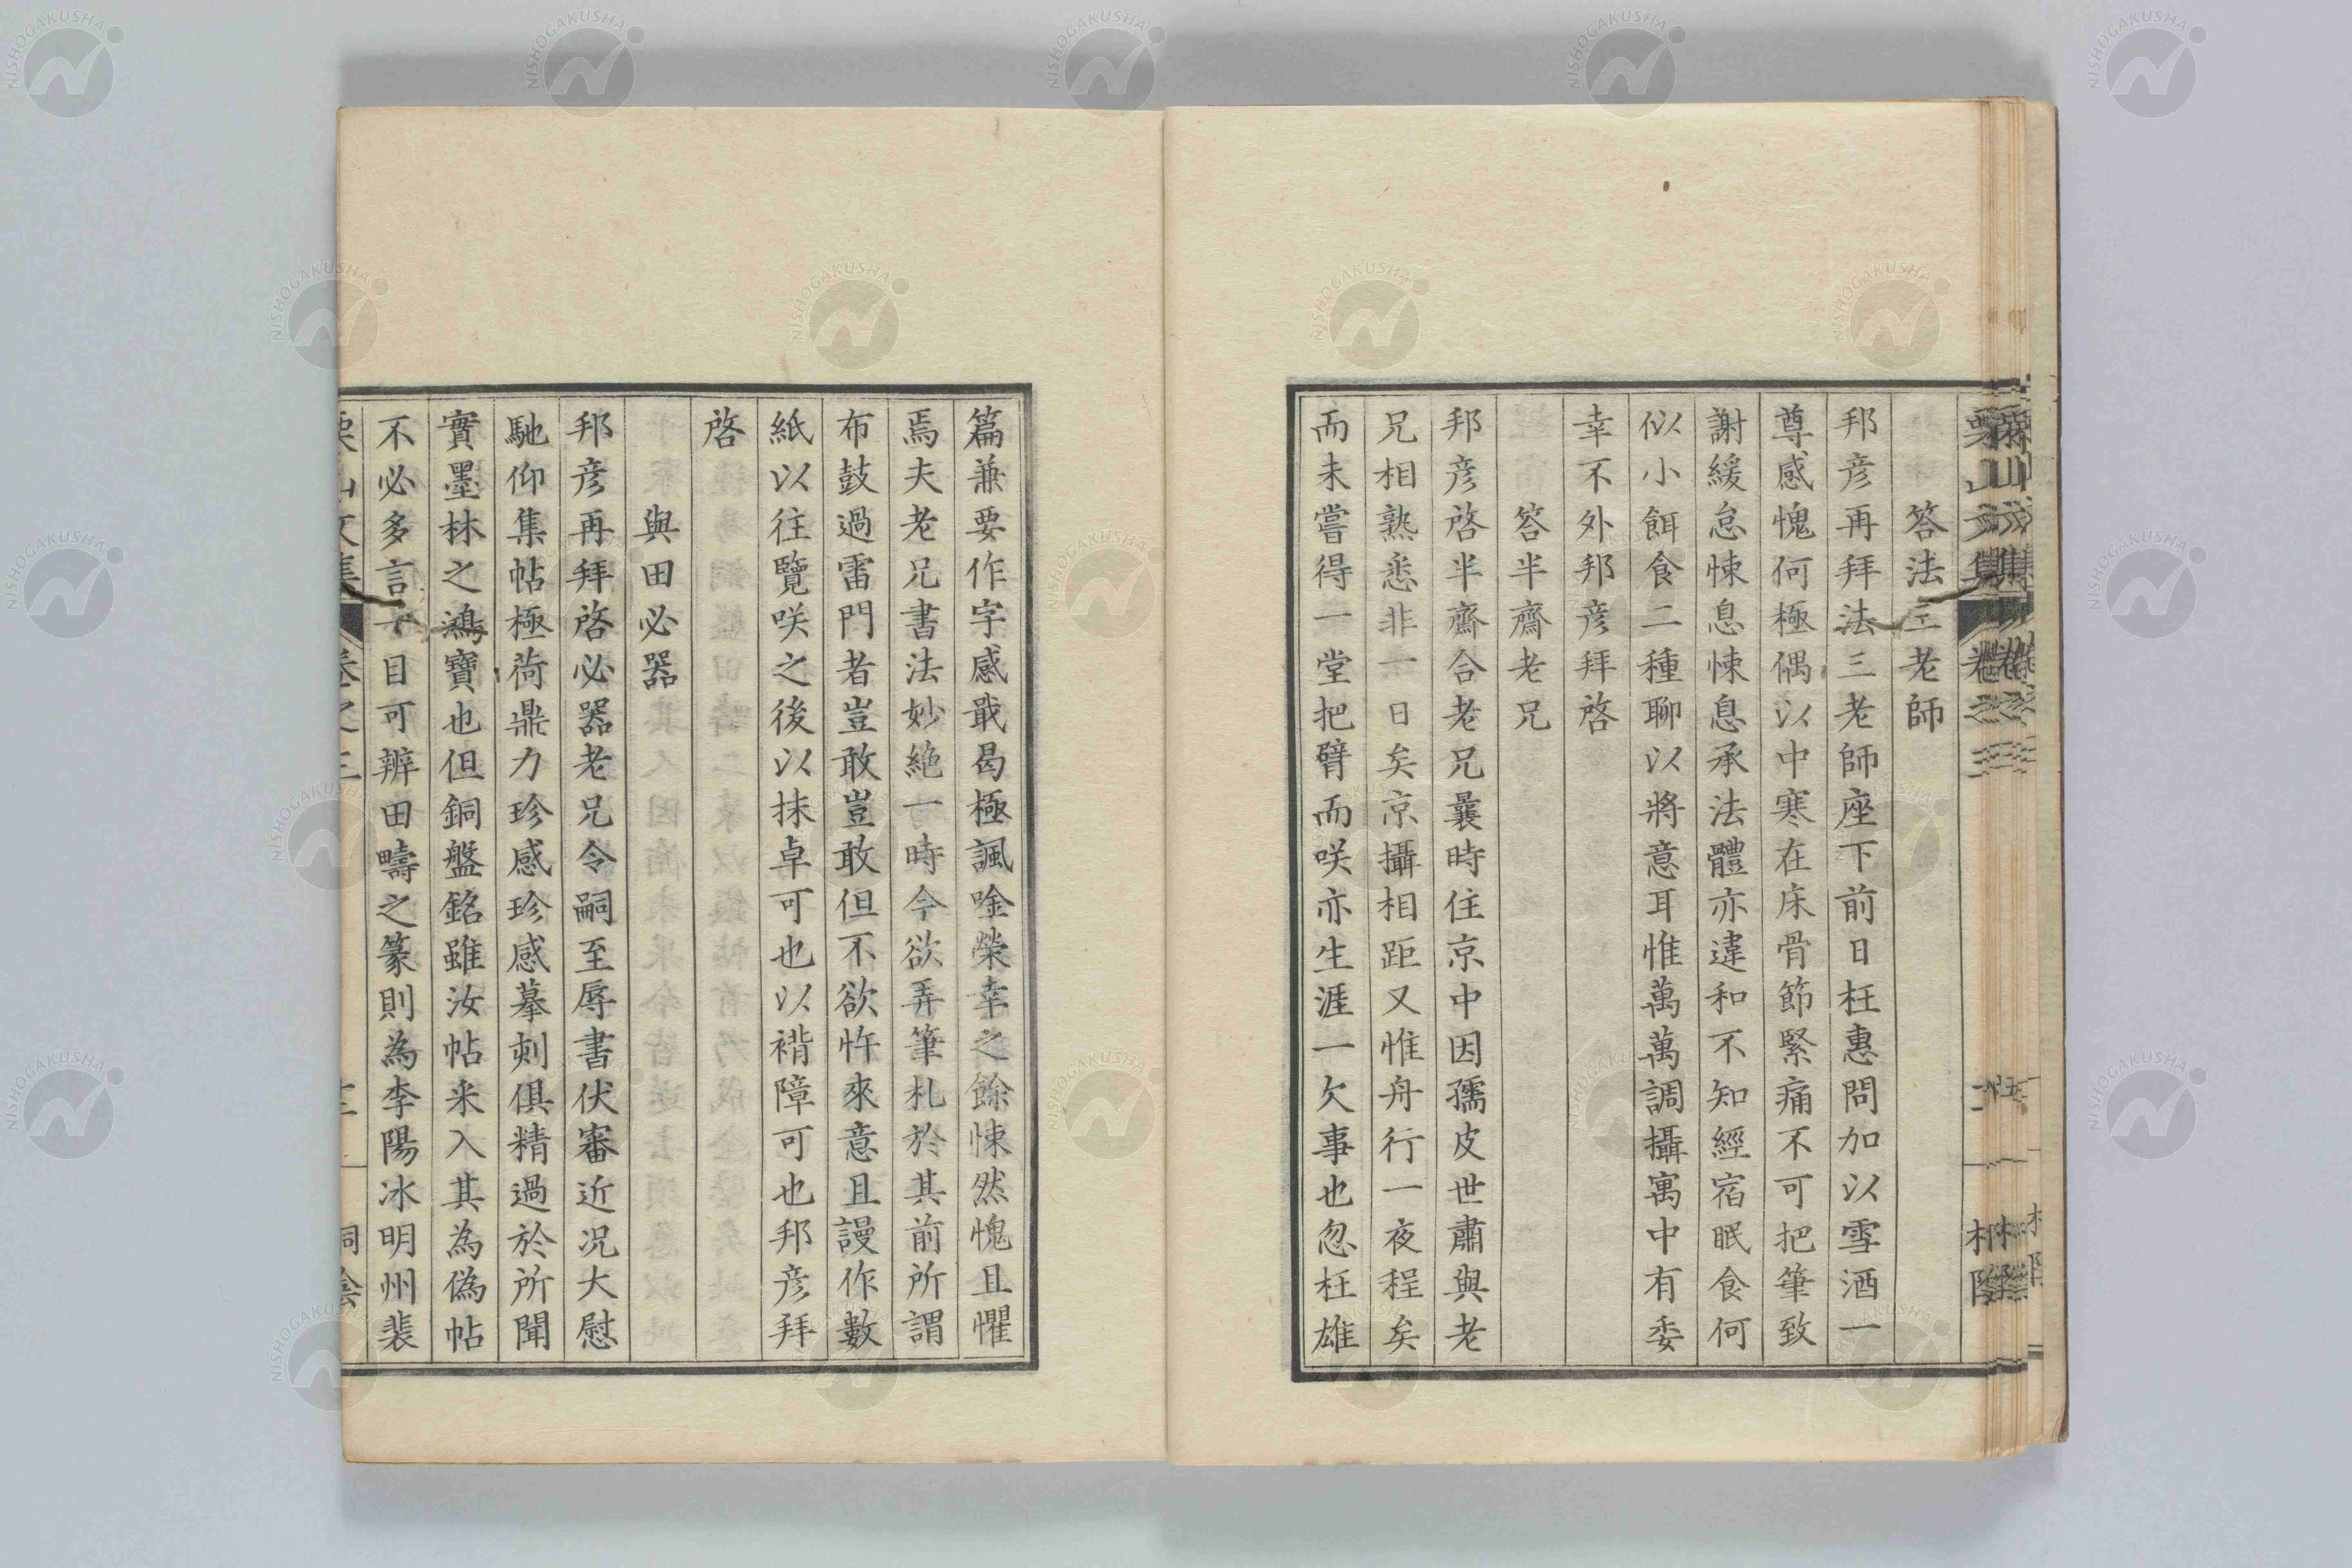 答法三老師
邦彦再拜法三老師座下前日枉惠問加以雪酒一
尊感愧何極偶以中寒在床骨節緊痛不可把筆致
謝緩怠悚息悚息承法體亦違和不知經宿眠食何
似小餌食二種聊以將意耳惟萬萬調攝寓中有委
幸不外邦彦拜啓
答半齋老兄
邦彦啓半齋合老兄曩時住京中因孺皮世肅與老
兄相熟悉非一日矣京攝相距又惟舟行一夜程矣
而未嘗得一堂把臂而咲亦生涯一欠事也忽枉雄
篇兼要作字感戢曷極諷唫榮幸之餘悚然愧且懼
焉夫老兄書法妙絶一時今欲弄筆札於其前所謂
布鼓過雷門者豈敢豈敢但不欲忤來意且謾作數
紙以往覽咲之後以抹卓可也以褙障可也邦彦拜
啓
與田必器
邦彦再拜啓必器老兄令嗣至辱書伏審近况大慰
馳仰集帖極荷鼎力珍感珍感摹刺俱精過於所聞
實墨林之鴻寶也但銅盤銘雖汝帖来入其為偽帖
不必多言十目可辨田疇之篆則為李陽冰明州裴
栗山文集 卷之三